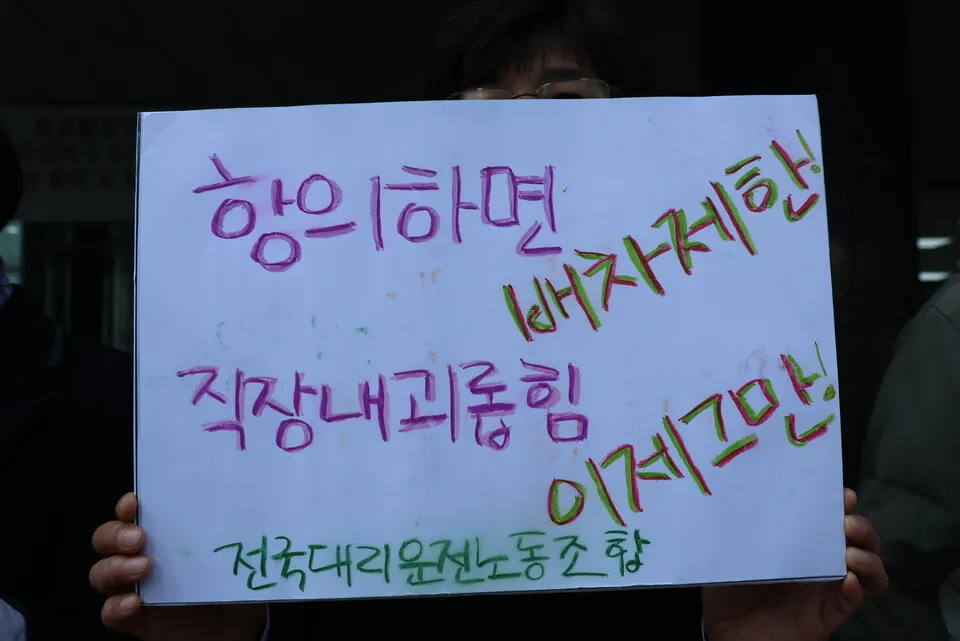 항의하면
배자제한!
직장내괴롭힘
이제그만!
전국대리운전노동조합